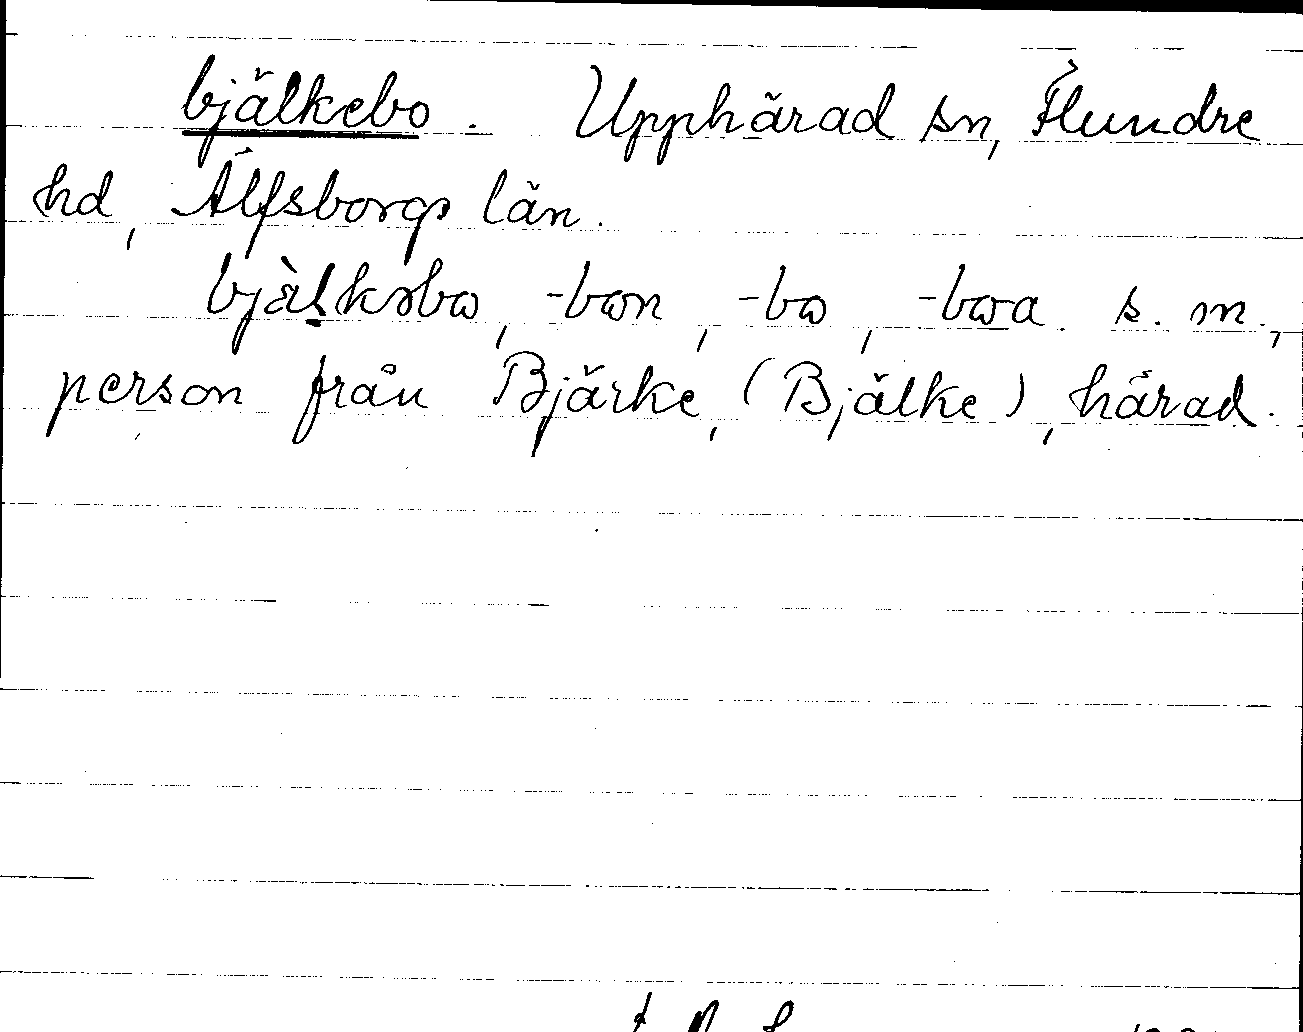 bjälkebo. Upphärad sn, Flundre
hd, Älfsborgs län.
bjàḷkəbω, -bωn, -bω, -bωa. s. m.,
person från Bjärke, (Bjälke), härad.